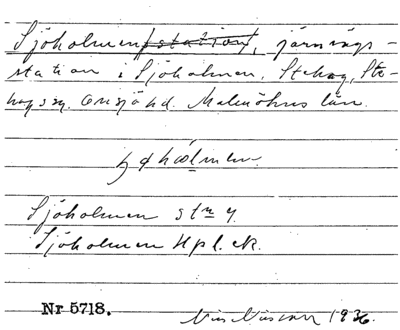 Sjöholmen station, järnvägs-
station i Sjöholmen, Stehag, Ste-
hags sn. Onsjö hd. Malmöhus län.
Sjöholmen stn
Sjöholmen Hpl.
Nr 5718.
1936